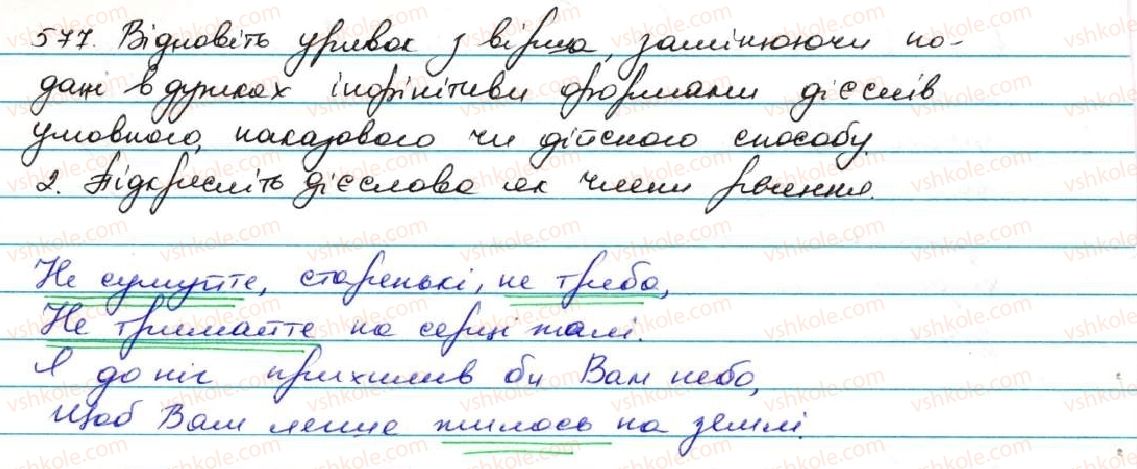 577. Відновіть уривок з вірша, замінюючи по-
дані в дужках інфінітиви формами дієслів
умовного, наказового чи дійсного способу
2. Підкресліть дієслова як члени речення.
Не сумуйте, старенькі, не треба,
Не тримайте на серці жалі.
Я до ніг прихилив би Вам небо,
Щоб Вам легше жилось на землі.